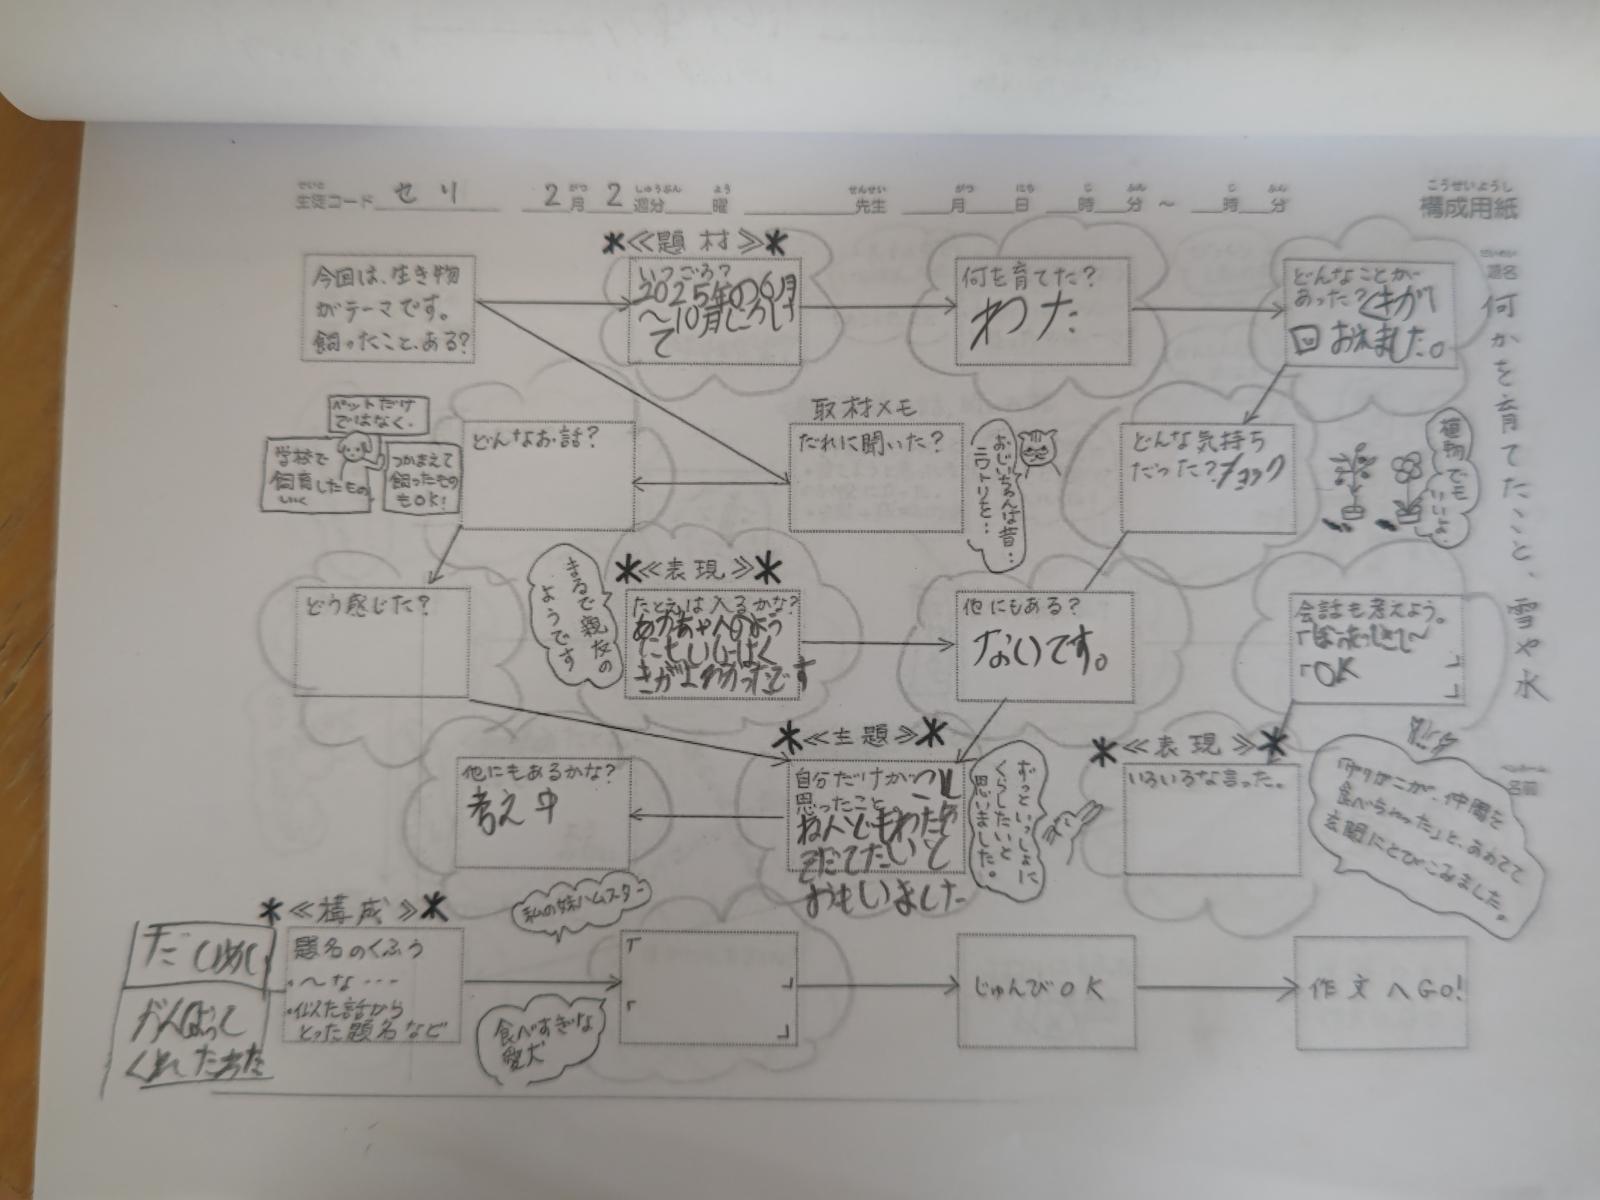 せいと
生徒コード せり 2月2週分 曜 先生 月 日 時 分 ～ 時 分
こうせいようし
構成用紙
題名
何かを育てたこと、雪や氷
名前
今回は、生き物
がテーマです。
飼ったこと、ある?
*≪題材≫*
いつごろ?
2025年の6月
～10月
て
何を育てた?
わた
どんなことが
あった?くきが1
回おれました。
ペットだけ
ではなく、
学校で
飼育したもの
つかまえて
飼ったもの
もOK!
どんなお話?
取材メモ
だれに聞いた?
おじいちゃんは昔…
ニワトリを…
どんな気持ち
だった?ショック
植物でも
いいよ。
どう感じた?
まるで親友の
ようです
*≪表現≫*
たとえは入るかな?
あかちゃんのよう
きがよわかったです
他にもある?
ないです。
会話も考えよう。
「OK
」
」
他にもあるかな?
考え中
*≪主題≫*
自分だけがつよく
思ったこと
なんどもわたを
そだてたいと
おもいました
ずっといっしょに
くらしたいと
思いました。
*≪表現≫*
いろいろな言った。
「ザリがニが、仲間を
食べちゃった」と、あわてて
玄関にとびこみました。
*≪構成≫*
題名のくふう
・～な…
・似た話から
とった題名など
だいめい
がんばって
くれたわた
私の妹ハムスター
食べすぎな
愛犬
「
」
「
」
じゅんびOK
作文へGO!